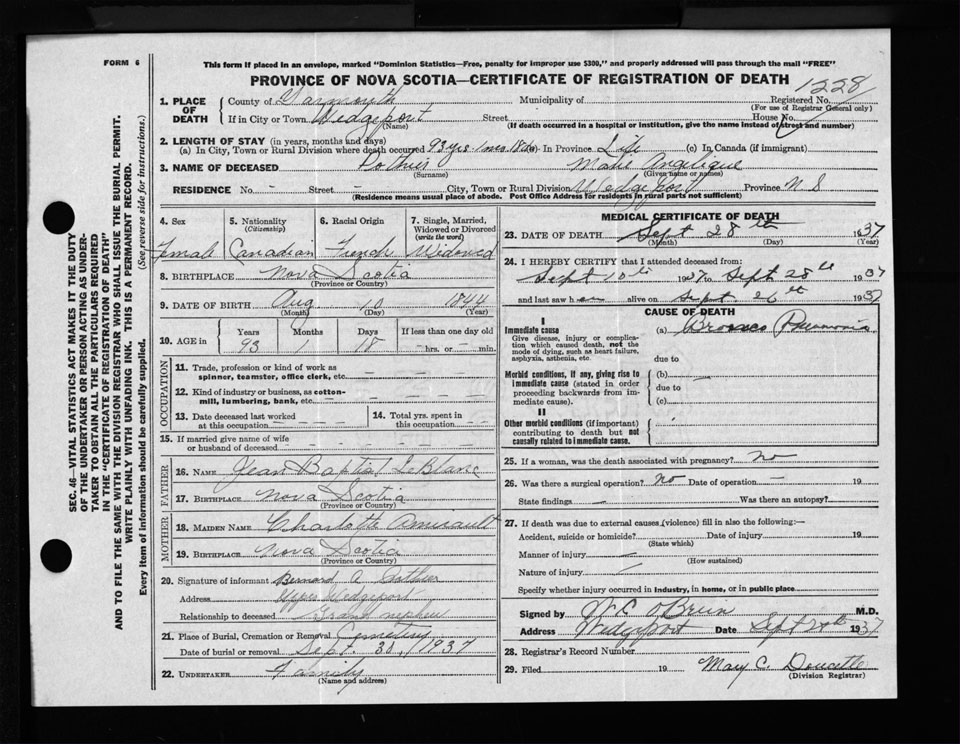 FORM 6
This form if placed in an envelope, marked "Dominion Statistics—Free, penalty for improper use $300," and properly addressed will pass through the mail "FREE"
PROVINCE OF NOVA SCOTIA—CERTIFICATE OF REGISTRATION OF DEATH
1228
1. PLACE OF DEATH
County of Yarmouth Municipality of Registered No.
(For use of Registrar General only)
If in City or Town Wedgeport Street House No.
(Name) (If death occurred in a hospital or institution, give the name instead of street and number)
2. LENGTH OF STAY (in years, months and days)
(a) In City, Town or Rural Division where death occurred 93 yrs. 1 mo. 18 ds (b) In Province Life (c) In Canada (if immigrant)
3. NAME OF DECEASED Pothier Marie Angelique
(Surname) (Given name or names)
RESIDENCE No. - Street - City, Town or Rural Division Wedgeport Province N S
(Residence means usual place of abode. Post Office Address for residents in rural parts not sufficient)
4. Sex
5. Nationality (Citizenship)
6. Racial Origin
7. Single, Married, Widowed or Divorced (write the word)
Female Canadian French Widowed
8. BIRTHPLACE Nova Scotia
(Province or Country)
9. DATE OF BIRTH Aug 10 1844
(Month) (Day) (Year)
10. AGE in Years Months Days If less than one day old
93 1 18 - hrs. or - min.
OCCUPATION
11. Trade, profession or kind of work as spinner, teamster, office clerk, etc.
12. Kind of industry or business, as cotton-mill, lumbering, bank, etc.
13. Date deceased last worked at this occupation
14. Total yrs. spent in this occupation
15. If married give name of wife or husband of deceased
FATHER
16. NAME Jean Baptist LeBlanc
17. BIRTHPLACE Nova Scotia
MOTHER
18. MAIDEN NAME Charlotte Amirault
19. BIRTHPLACE Nova Scotia
(Province or Country)
20. Signature of informant Bernard A Pothier
Address Upper Wedgeport
Relationship to deceased Grand nephew
21. Place of Burial, Cremation or Removal Cemetery
Date of burial or removal Sept. 30, 1937
22. UNDERTAKER Family
(Name and address)
MEDICAL CERTIFICATE OF DEATH
23. DATE OF DEATH Sept 28th 1937
(Month) (Day) (Year)
24. I HEREBY CERTIFY that I attended deceased from:
Sept 10th 1937 to Sept 28th 1937
and last saw her alive on Sept 26th 1937
CAUSE OF DEATH
I
Immediate cause (a) Pneumonia
Give disease, injury or complication which caused death, not the mode of dying, such as heart failure, asphyxia, asthenia, etc.
due to
Morbid conditions, if any, giving rise to immediate cause (stated in order proceeding backwards from immediate cause).
(b) —
due to
(c)
II
Other morbid conditions (if important) contributing to death but not causally related to immediate cause.
25. If a woman, was the death associated with pregnancy? No
26. Was there a surgical operation? No Date of operation - 19
State findings - Was there an autopsy?
27. If death was due to external causes (violence) fill in also the following:—
Accident, suicide or homicide? Date of injury 19
(State which)
Manner of injury
(How sustained)
Nature of injury
Specify whether injury occurred in industry, in home, or in public place
Signed by W C O'Brien M.D.
Address Wedgeport Date Sept 29th 1937
28. Registrar's Record Number
29. Filed 19 Mary C. Doucette
(Division Registrar)
SEC. 46—VITAL STATISTICS ACT MAKES IT THE DUTY
OF THE UNDERTAKER OR PERSON ACTING AS UNDER-
TAKER TO OBTAIN ALL THE PARTICULARS REQUIRED
IN THE "CERTIFICATE OF REGISTRATION OF DEATH"
AND TO FILE THE SAME WITH THE DIVISION REGISTRAR WHO SHALL ISSUE THE BURIAL PERMIT.
WRITE PLAINLY WITH UNFADING INK. THIS IS A PERMANENT RECORD.
Every item of information should be carefully supplied. (See reverse side for instructions.)